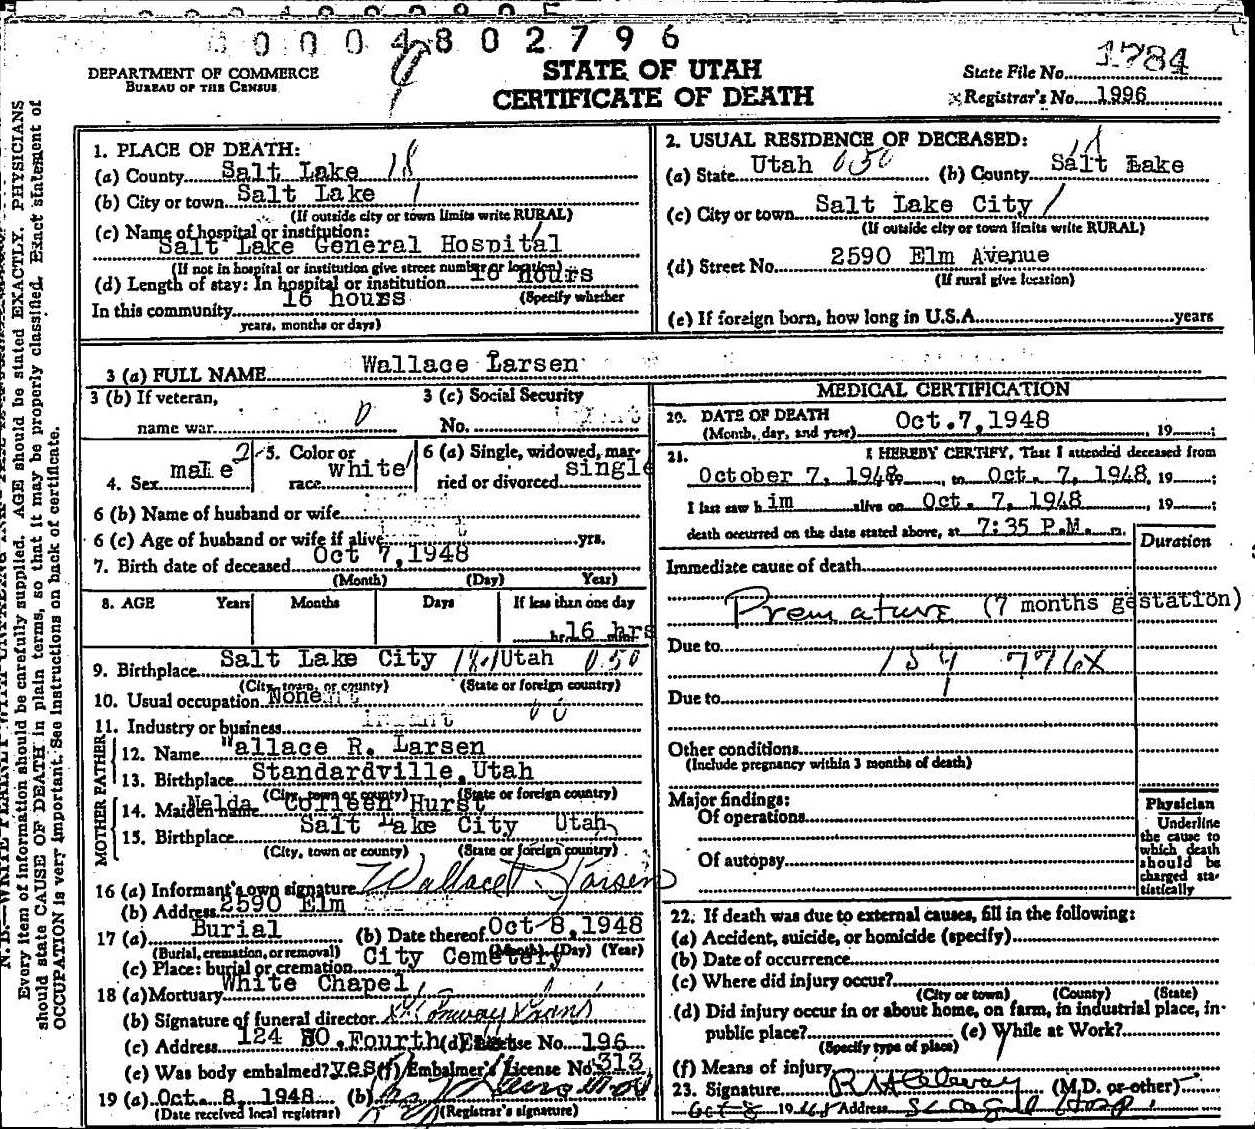 0 0 0 4 8 0 2 7 9 6
DEPARTMENT OF COMMERCE
BUREAU OF THE CENSUS
STATE OF UTAH
CERTIFICATE OF DEATH
State File No. 1784
Registrar's No. 1996
N. B.—WRITE PLAINLY WITH UNFADING INK
Every item of information should be carefully supplied. AGE should be stated EXACTLY. PHYSICIANS
should state CAUSE OF DEATH in plain terms, so that it may be properly classified. Exact statement of
OCCUPATION is very important. See instructions on back of certificate.
1. PLACE OF DEATH:
(a) County Salt Lake 18
(b) City or town Salt Lake 1
(If outside city or town limits write RURAL)
(c) Name of hospital or institution:
Salt Lake General Hospital
(If not in hospital or institution give street number or location)
(d) Length of stay: In hospital or institution 16 hours
(Specify whether
In this community 16 hours
years, months or days)
2. USUAL RESIDENCE OF DECEASED:
(a) State Utah 050 (b) County Salt Lake
(c) City or town Salt Lake City /
(If outside city or town limits write RURAL)
(d) Street No. 2590 Elm Avenue
(If rural give location)
(e) If foreign born, how long in U.S.A. years
3 (a) FULL NAME Wallace Larsen
3 (b) If veteran, 3 (c) Social Security
name war No.
4. Sex male 2 5. Color or race white 6 (a) Single, widowed, married or divorced single
6 (b) Name of husband or wife
6 (c) Age of husband or wife if alive yrs.
7. Birth date of deceased Oct 7, 1948
(Month) (Day) Year)
8. AGE Years Months Days If less than one day
hr. 16 hrs
9. Birthplace Salt Lake City Utah 050
(City, town, or county) (State or foreign country)
10. Usual occupation None
11. Industry or business infant
FATHER
12. Name Wallace R. Larsen
13. Birthplace Standardville, Utah
(City, town or county) (State or foreign country)
MOTHER
14. Maiden name Nelda Colleen Hurst
15. Birthplace Salt Lake City Utah
(City, town or county) (State or foreign country)
16 (a) Informant's own signature Wallace R. Larsen
(b) Address 2590 Elm
17 (a) Burial (b) Date thereof Oct 8, 1948
(Burial, cremation, or removal) (Month) (Day) (Year)
(c) Place: burial or cremation City Cemetery
18 (a) Mortuary White Chapel
(b) Signature of funeral director
(c) Address 124 SO. Fourth East (d) License No. 196
(e) Was body embalmed? yes (f) Embalmer's License No. 313
19 (a) Oct. 8, 1948 (b)
(Date received local registrar) (Registrar's signature)
MEDICAL CERTIFICATION
20. DATE OF DEATH Oct. 7, 1948
(Month, day, and year) , 19 ;
21. I HEREBY CERTIFY, That I attended deceased from
October 7, 1948, to Oct. 7, 1948, 19 ;
I last saw h im alive on Oct. 7, 1948 , 19 ;
death occurred on the date stated above, at 7:35 P.M. m.
Duration
Immediate cause of death
Premature (7 months gestation)
Due to 159 776X
Due to
Other conditions
(Include pregnancy within 3 months of death)
Major findings:
Of operations
Of autopsy
Physician
Underline
the cause to
which death
should be
charged sta-
tistically
22. If death was due to external causes, fill in the following:
(a) Accident, suicide, or homicide (specify)
(b) Date of occurrence
(c) Where did injury occur?
(City or town) (County) (State)
(d) Did injury occur in or about home, on farm, in industrial place, in-
public place? (e) While at Work?
(Specify type of place)
(f) Means of injury
23. Signature (M.D. or other)
Oct 8 1948 Address